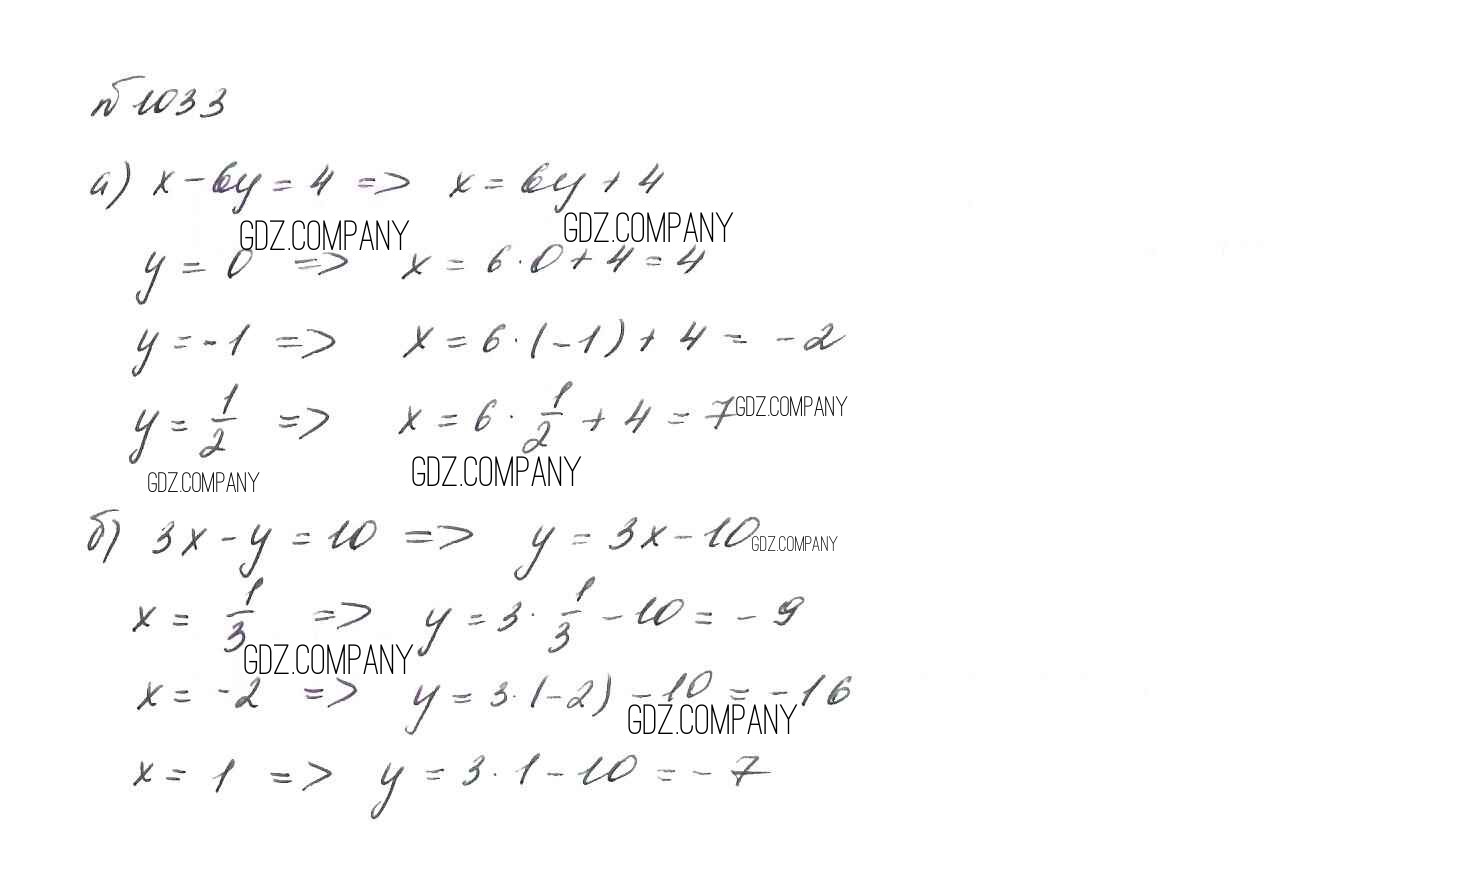 № 1033
а) x - 6y = 4 => x = 6y + 4
GDZ.COMPANY GDZ.COMPANY
y = 0 => x = 6 · 0 + 4 = 4
y = -1 => x = 6 · (-1) + 4 = -2
y = 1/2 => x = 6 · 1/2 + 4 = 7 GDZ.COMPANY
GDZ.COMPANY GDZ.COMPANY
б) 3x - y = 10 => y = 3x - 10 GDZ.COMPANY
x = 1/3 => y = 3 · 1/3 - 10 = -9
GDZ.COMPANY
x = -2 => y = 3 · (-2) - 10 = -16
GDZ.COMPANY
x = 1 => y = 3 · 1 - 10 = -7